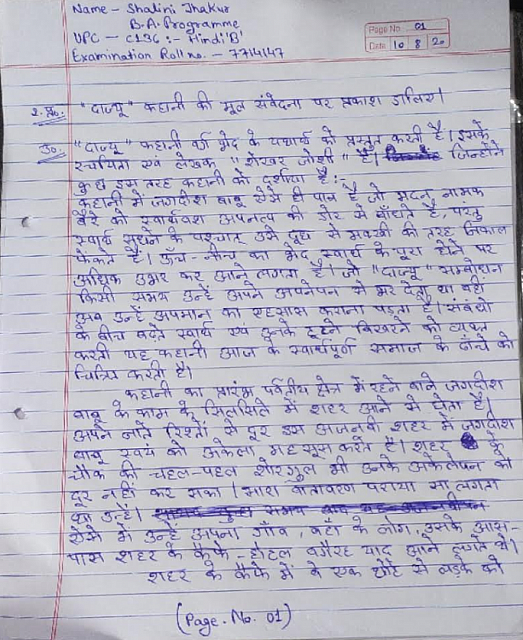 Name - Shalini Thakur
B.A. Programme
UPC - C13C :- Hindi 'B'
Examination Roll no. - 7714147
Page No. 01
Date 10 8 20
2. प्र०. "दाज्यू" कहानी की मूल संवेदना पर प्रकाश डालिए।
उ०. "दाज्यू" कहानी वर्ग भेद के यथार्थ को प्रस्तुत करती है। इसके
रचयिता एवं लेखक "शेखर जोशी" है। जिन्होंने
कुछ इस तरह कहानी को दर्शाया है :-
कहानी में जगदीश बाबू ऐसे ही पात्र है जो मदन नामक
बैरे को स्वार्थवश अपनत्व की डोर से बाँधते है, परंतु
स्वार्थ सधने के पश्चात् उसे दूध से मक्खी की तरह निकाल
फेंकते है। ऊँच-नीच का भेद स्वार्थ के पूरा होने पर
अधिक उभर कर आने लगता है। जो "दाज्यू" सम्बोधन
किसी समय उन्हें अपने अपनेपन से भर देता था वही
अब उन्हें अपमान का एहसास कराता है। संबंधो
के बीच बढ़ते स्वार्थ एवं उनके टूटने बिखरने को व्यक्त
करती यह कहानी आज के स्वार्थपूर्ण समाज के ढाँचे को
चित्रित करती है।
कहानी का प्रारंभ पर्वतीय क्षेत्र में रहने वाले जगदीश
बाबू के काम के सिलसिले में शहर आने से होता है।
अपने नाते रिश्तों से दूर इस अजनबी शहर में जगदीश
बाबू स्वयं को अकेला महसूस करते है। शहर के
चौक की चहल-पहल शोरगुल भी उनके अकेलेपन को
दूर नहीं कर सका। सारा वातावरण पराया सा लगता
था उन्हें।
ऐसे में उन्हें अपना गाँव, वहाँ के लोग, उसके आस-
पास शहर के कैफे-होटल वगैरह याद आने लगते थे।
शहर के कैफे में वे एक छोटे से लड़के को
(Page. No. 01)